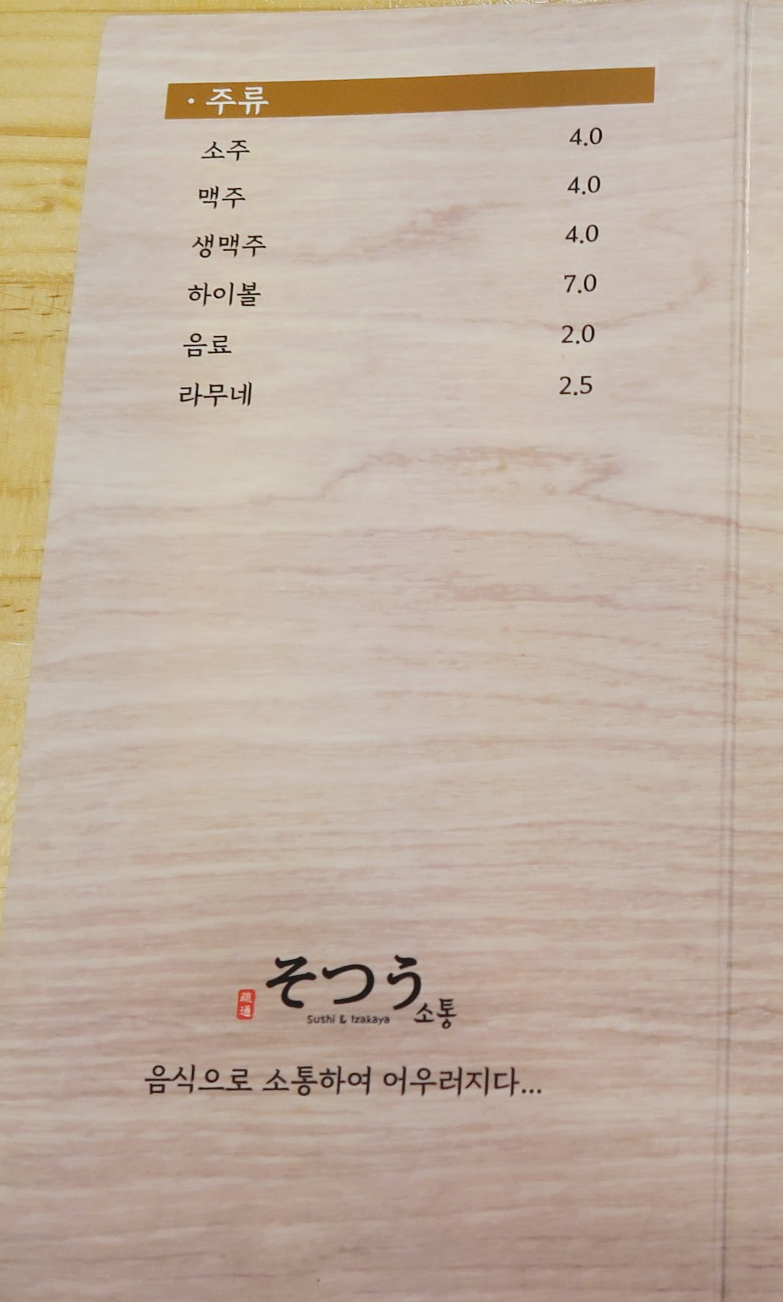 · 주류
소주 4.0
맥주 4.0
생맥주 4.0
하이볼 7.0
음료 2.0
라무네 2.5
疏通 そつう 소통
Sushi & Izakaya
음식으로 소통하여 어우러지다...